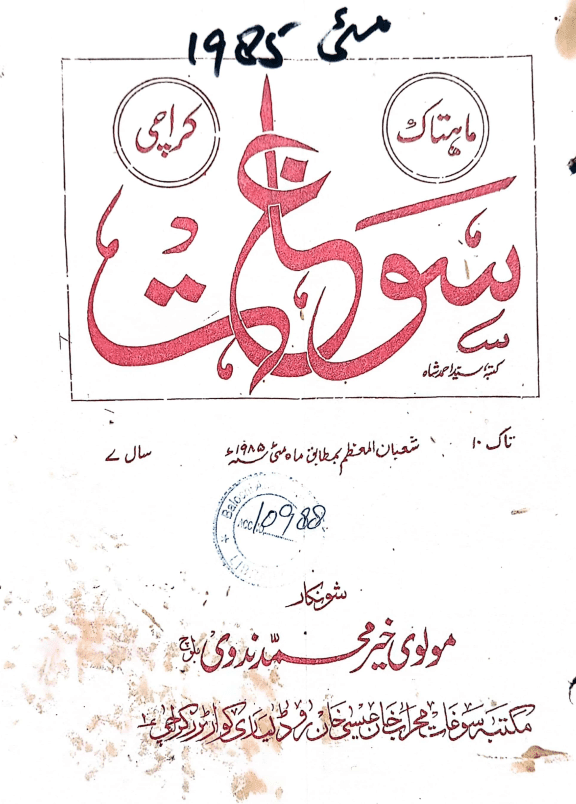 مئی 1985
ماہتاک
کراچی
سوغات
کتبہ، سید احمد شاہ
تاک ۱۰ شعبان المعظم بمطابق ماہ مئی ۱۹۸۵ء سال ۷
Balo
ACC
10988
شونکار
مولوی خیر محمد ندوی بلوچ
مکتبہ سوغات محراب خان عیسیٰ خان روڈ لیاری کوارٹرز کراچی